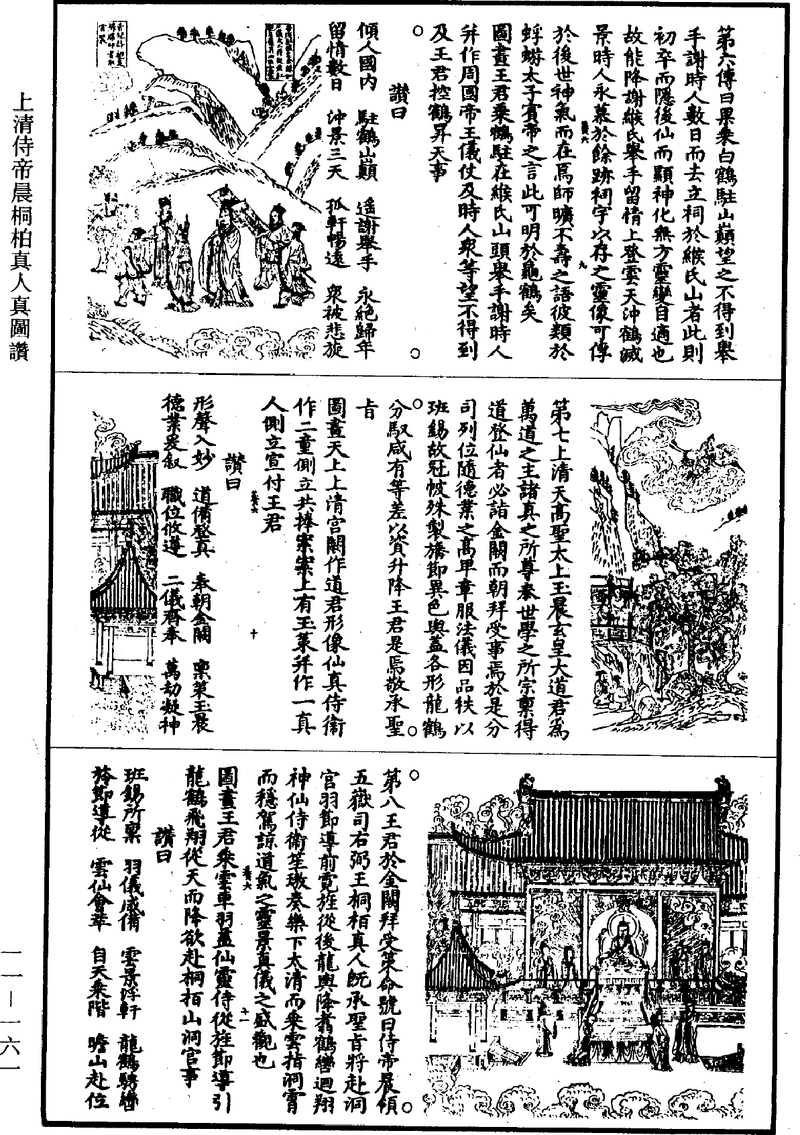 上清侍帝晨桐柏真人真圖讚
一一—一六一
第六傳曰果乘白鶴駐山巔望之不得到舉
手謝時人數日而去立祠於緱氏山者此則
初卒而隱後仙而顯神化無方靈變自適也
故能降謝緱氏舉手留情上登雲天沖鶴滅
景時人永慕於餘跡祠宇以存之靈像可傳
於後世神氣而在焉師曠不壽之語彼類於
蜉蝣太子賓帝之言此可明於龜鶴矣
圖畫王君乘鶴駐在緱氏山頭舉手謝時人
并作周國帝王儀仗及時人衆等望不得到
及王君控鶴昇天事
讚曰
傾人國內 駐鶴山巔 遥謝舉手 永絕歸年
留情數日 沖景三天 孤軒暢遠 衆被悲旋
第七上清天高聖太上玉晨玄皇大道君爲
萬道之主諸真之所尊奉世學之所宗稟得
道登仙者必詣金闕而朝拜受事焉於是分
司列位隨德業之高卑章服法儀因品秩以
班錫故冠帔殊製旛節異色輿蓋各形龍鶴
分馭咸有等差以資升降王君是焉敬承聖
旨
圖畫天上上清宮闕作道君形像仙真侍衛
作二童側立共捧案案上有玉策并作一真
人側立宣付王君
讚曰
形聲入妙 道備登真 奉朝金闕 稟策玉晨
德業爰叙 職位攸遵 二儀齊奉 萬劫凝神
第八王君於金闕拜受策命號曰侍帝晨領
五嶽司右弼王桐柏真人既承聖旨將赴洞
官羽節導前霓旌從後龍輿降翥鶴轡迴翔
神仙侍衛笙璈奏樂下太清而乘雲指洞霄
而穩駕諒道氣之靈景真儀之盛觀也
圖畫王君乘雲車羽蓋仙靈侍從旌節導引
龍鶴飛翔從天而降欲赴桐柏山洞宮事
讚曰
班錫所稟 羽儀咸備 雲景浮軒 龍鶴騁轡
旍節導從 雲仙會萃 自天乘階 瞻山赴位